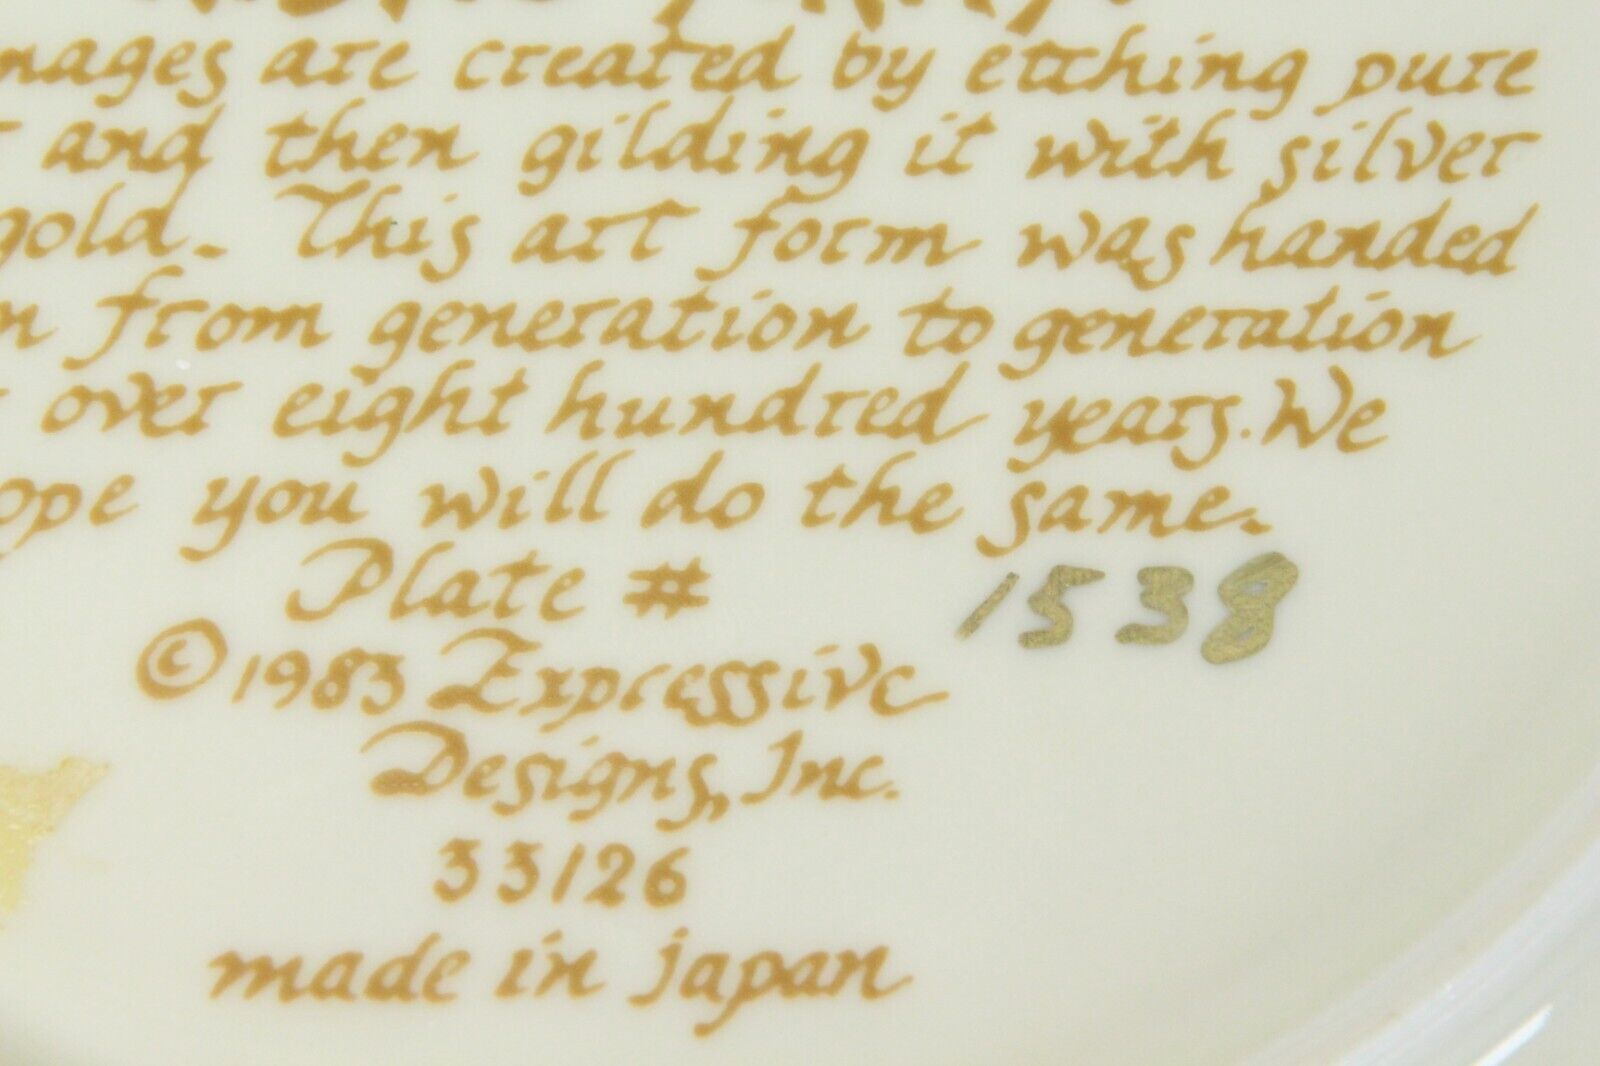 are created by etching pure
and then gilding it with silver
gold. This art form was handed
from generation to generation
over eight hundred years. We
you will do the same.
Plate # 1538
©1983 Expressive
Designs, Inc.
33126
made in japan